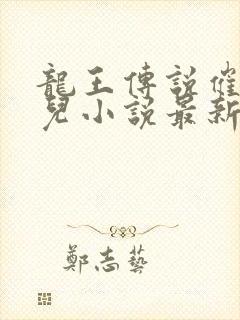 龍王傳說催
兒小說最新
鄭志藝